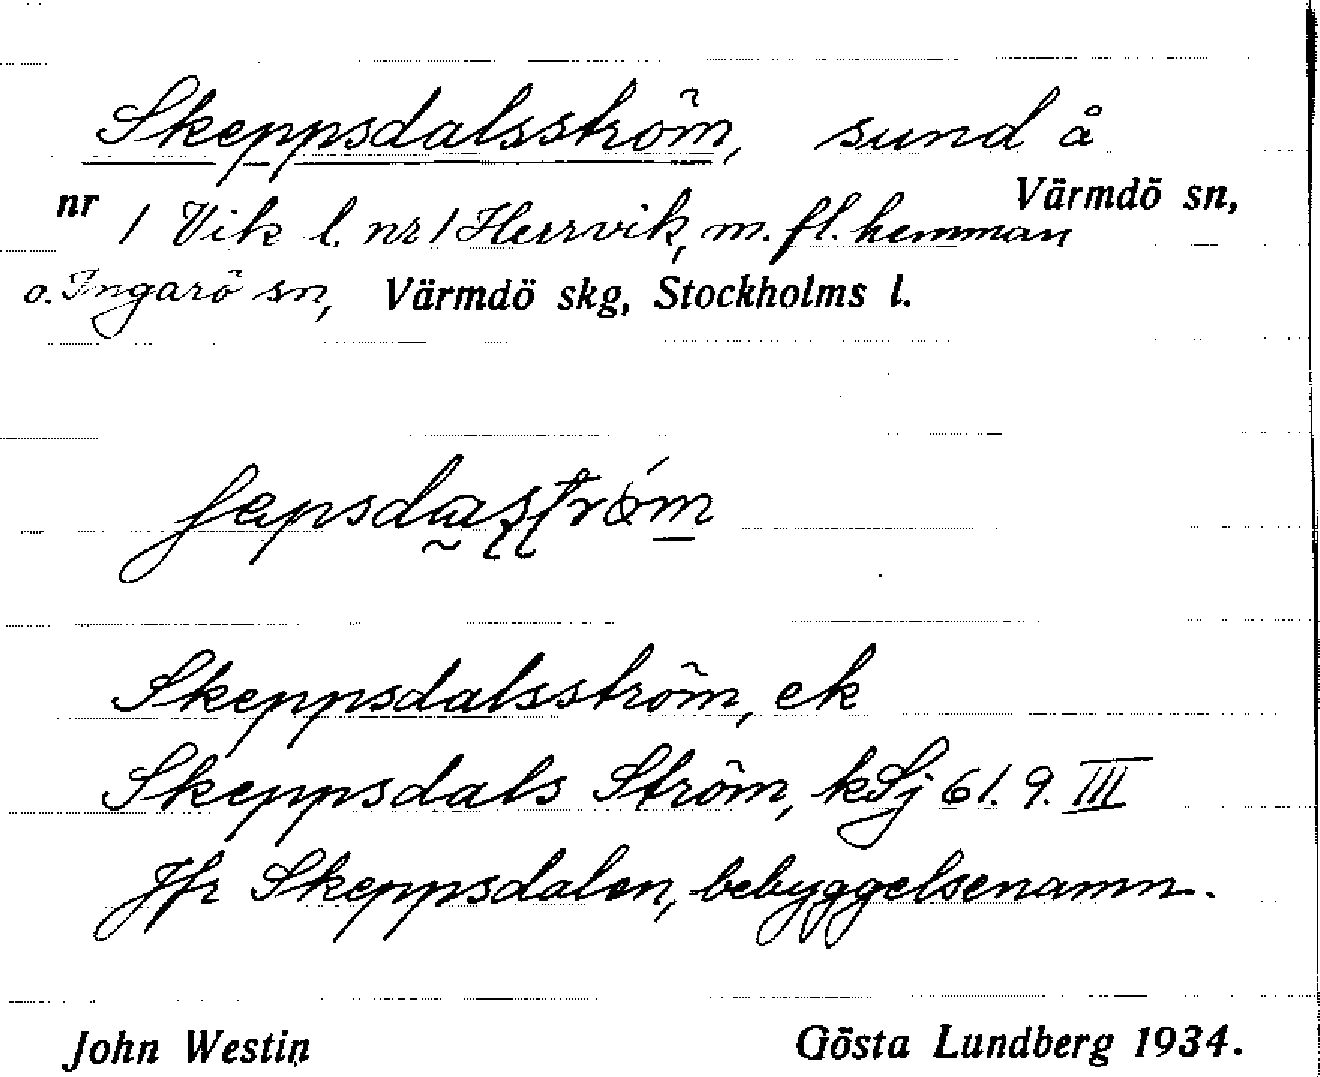 Skeppsdalsström, sund å
nr 1 Vik l. nr 1 Herrvik, m. fl. hemman Värmdö sn,
o. Ingarö sn, Värmdö skg, Stockholms l.
Skeppsdalsström, ek
Skeppsdals Ström, kSj 61. 9. III
Jfr Skeppsdalen, bebyggelsenamn.
John Westin Gösta Lundberg 1934.